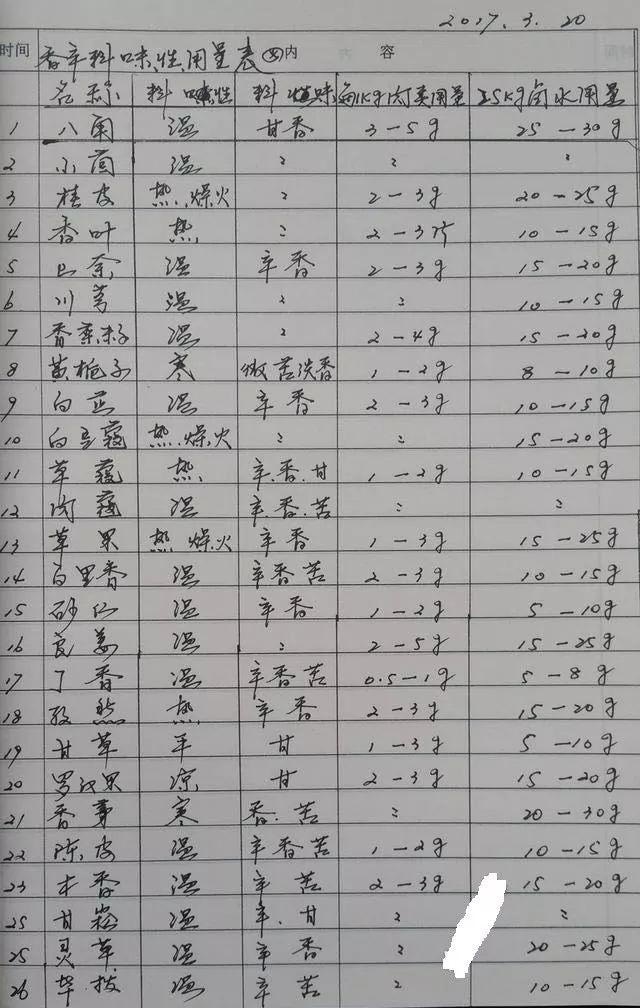 2017.3.20
时间 香辛料味性用量表 内 容
名称 料味性 料性味 每1kg肉类用量 25kg卤水用量
1 八角 温 甘香 3-5g 25-30g
2 小茴 温 〃 〃 〃
3 桂皮 热.燥火 〃 2-3g 20-25g
4 香叶 热 〃 2-3片 10-15g
5 山奈 温 辛香 2-3g 15-20g
6 川芎 温 〃 〃 10-15g
7 香菜籽 温 〃 2-4g 15-20g
8 黄栀子 寒 微苦淡香 1-2g 8-10g
9 白芷 温 辛香 2-3g 10-15g
10 白豆蔻 热.燥火 〃 〃 15-20g
11 草蔻 热 辛.香.甘 1-2g 10-15g
12 肉蔻 温 辛香.苦 〃 〃
13 草果 热 燥火 辛香 1-3g 15-25g
14 百里香 温 辛香苦 2-3g 10-15g
15 砂仁 温 辛香 1-2g 5-10g
16 良姜 温 〃 2-5g 15-25g
17 丁香 温 辛香苦 0.5-1g 5-8g
18 孜然 热 辛香 2-3g 15-20g
19 甘草 平 甘 1-3g 5-10g
20 罗汉果 凉 甘 2-3g 15-20g
21 香茅 寒 香.苦 〃 20-30g
22 陈皮 温 辛香苦 1-2g 10-15g
23 木香 温 辛苦 2-3g 15-20g
25 甘崧 温 辛.甘 〃 〃
25 灵草 温 辛香 〃 20-25g
26 毕拔 温 辛苦 〃 10-15g